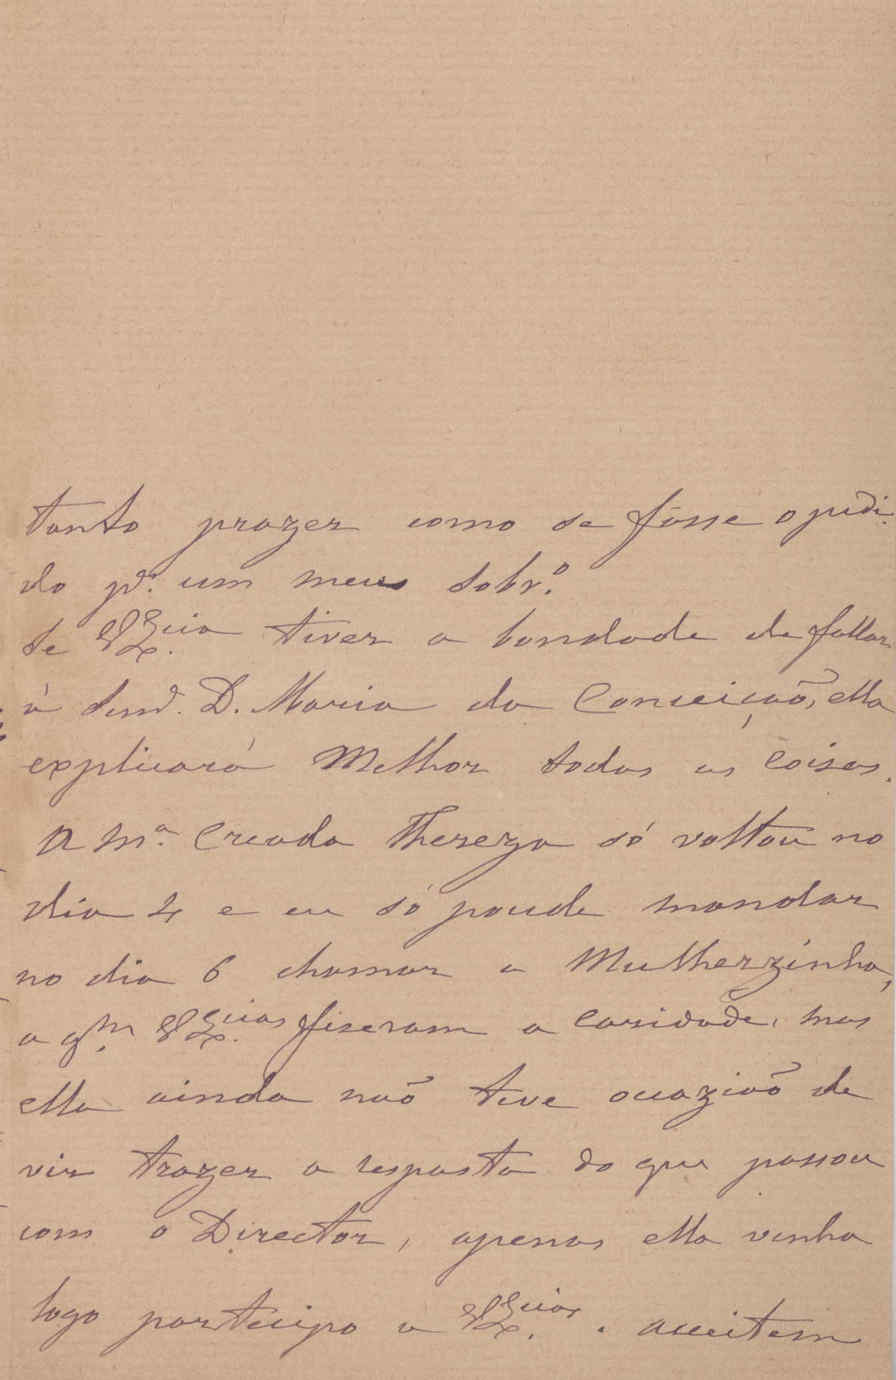 tanto prazer como se fôsse o pedi-
do pª. um meu sobrº.
Se VExcia tiver a bondade de fallar
á Senrª. D. Maria da Conceição, ella
explicará Melhor todas as coisas.
A mª. Creada Thereza só voltou no
dia 4 e eu só poude mandar
no dia 6 chamar a Mulherzinha,
a qm VExcias fiseram a Caridade, mas
ella ainda não teve ocazião de
vir trazer a resposta do que passou
com o Director, apenas ella venha
logo partecipo a VExcias. aceitem